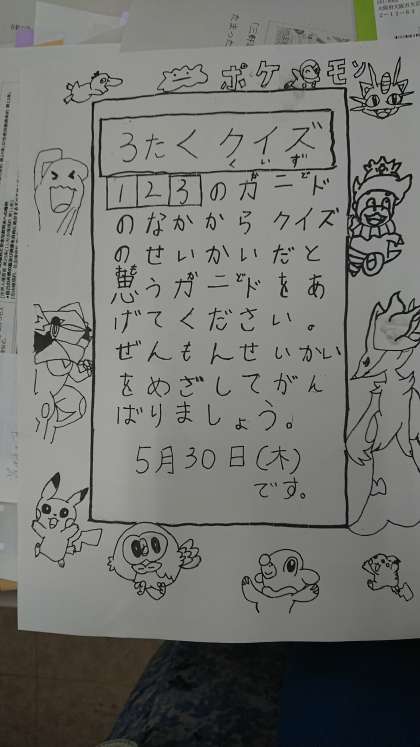 ポケモン
3たくクイズ
くいず
1 2 3 のガニド
のなかからクイズ
のせいかいだと
思うガニドをあ
げてください。
ぜんもんせいかい
をめざしてがん
ばりましょう。
5月30日(木)
です。